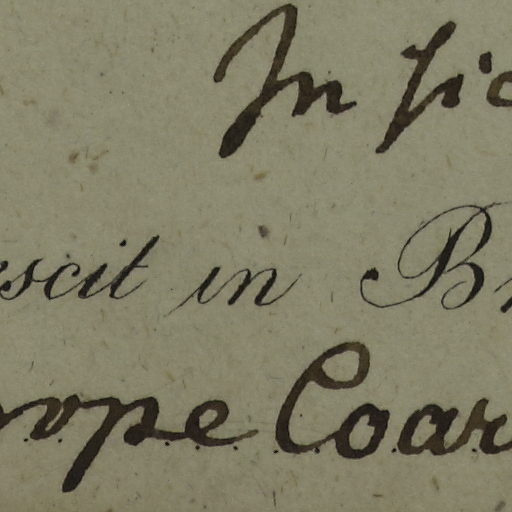 In sic
escit in Br
rope Coar